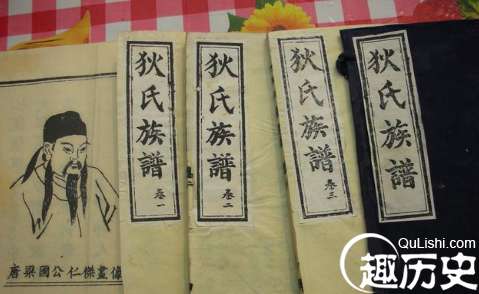 狄氏族譜
卷一
狄氏族譜
卷二
狄氏族譜
卷三
狄氏族譜
唐梁國公仁傑畫像
QuLishi.com
趣历史